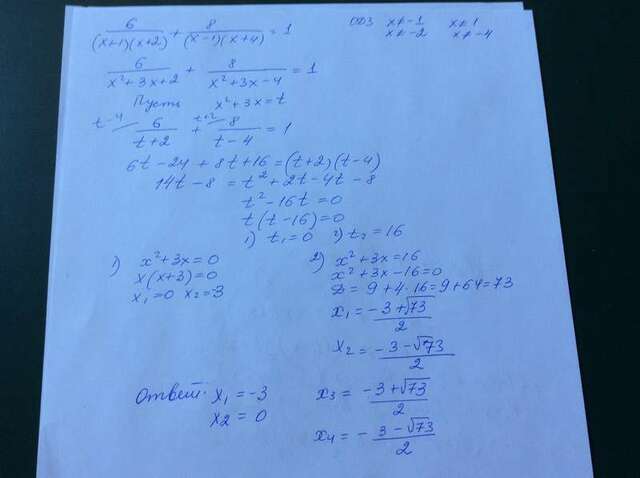 6/((x+1)(x+2)) + 8/((x-1)(x+4)) = 1   ОДЗ x≠-1   x≠1
x≠-2   x≠-4
6/(x²+3x+2) + 8/(x²+3x-4) = 1
Пусть x²+3x=t
t-4   6/(t+2) + t+2   8/(t-4) = 1
6t-24+8t+16=(t+2)(t-4)
14t-8 = t²+2t-4t-8
t²-16t=0
t(t-16)=0
1) t₁=0   2) t₂=16
1) x²+3x=0
x(x+3)=0
x₁=0   x₂=-3
2) x²+3x=16
x²+3x-16=0
D = 9+4·16=9+64=73
x₁ = (-3+√73)/2
x₂ = (-3-√73)/2
Ответ: x₁ = -3
x₂ = 0
x₃ = (-3+√73)/2
x₄ = - (3-√73)/2